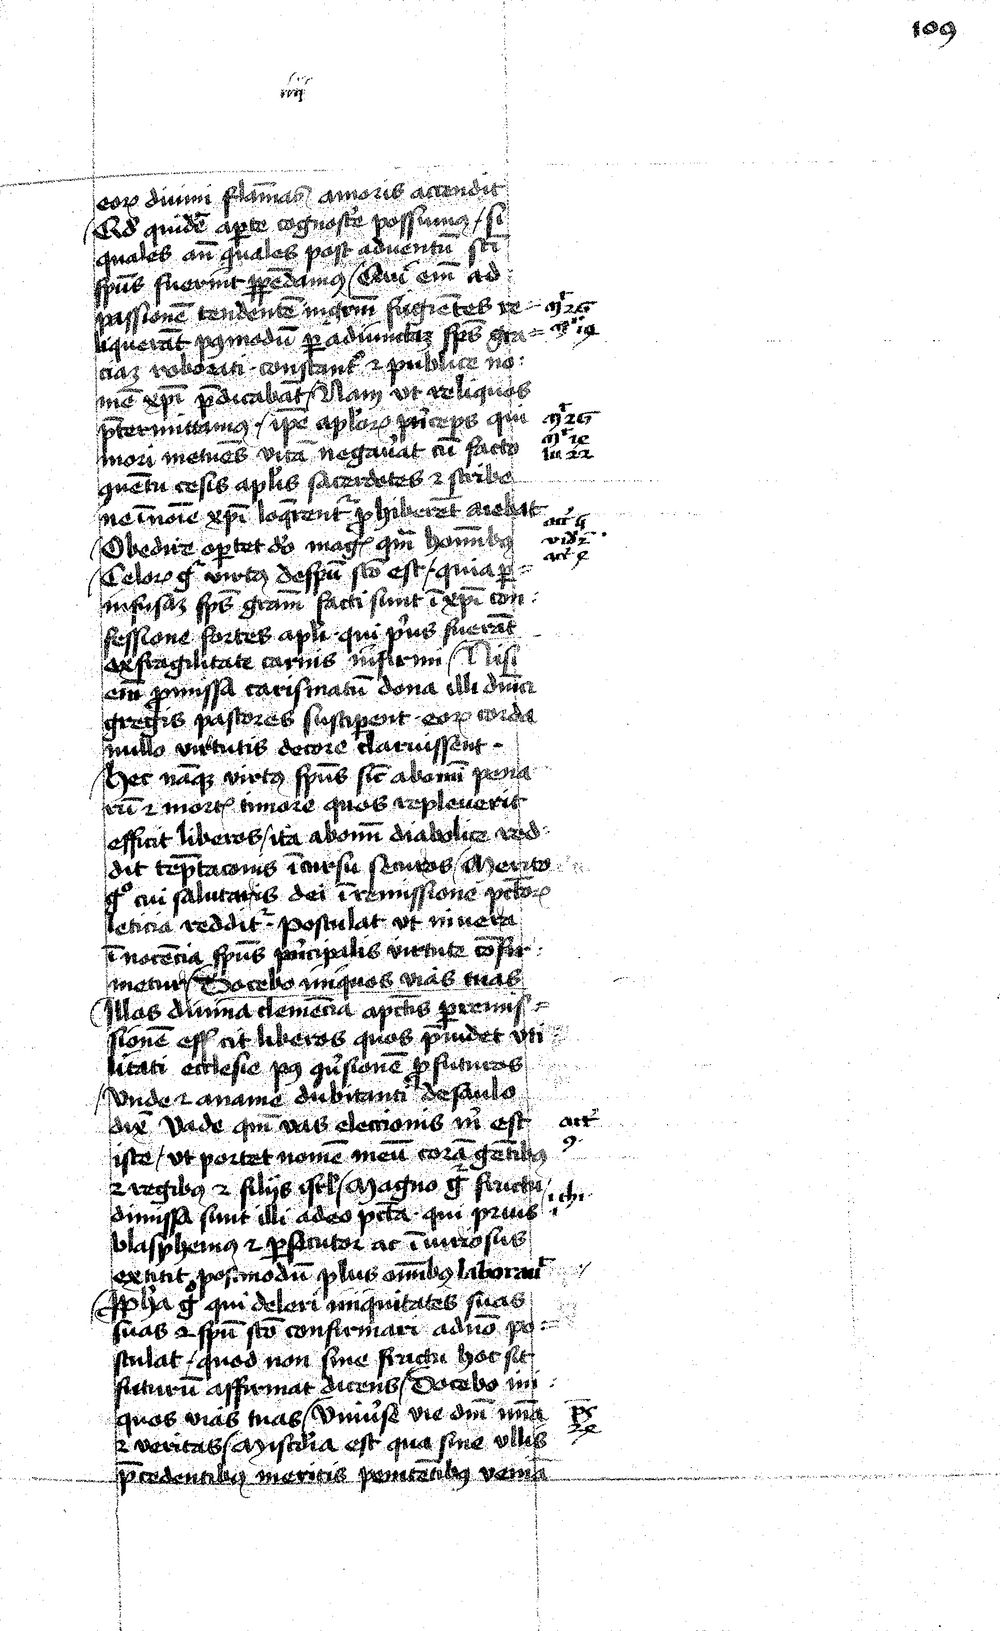 109
iiij
eoꝝ diuini flam̄as amoris accendit
Qd' quidē aꝑte cognosc'e possumꝰ / si
quales an̄ quales post aduentū sc̄i
sp̄us fuerint ꝑpēdamꝰ / Qui em̄ ad
passionē tendentē mgr̄m fugiētes re-
liquerāt pꝰmodū ꝑ adiunctaꝫ sp̄s gra=
ciaꝫ roborati constant' ⁊ publice no:
mē xp̄i p̄dicabāt / Nam vt reliquos
p̄termittamꝰ / ip̄e apl'oꝝ pn'ceps qui
mori metuēs vitā negau'at cū facto
ꝯuētu cesis apl'is sacerdotes ⁊ scribe
ne ī noīe xp̄i loqrent' ꝓhiberēt aiebat
Obedire oꝑtet dō mag' qm̄ hoīnibꝰ
Celoꝝ g' virtꝰ de spū scō est / quia ꝑ=
infusaꝫ sp̄s grām facti sunt ī xp̄i con:
fessione fortes apl'i qui pr'us fuerāt
ex fragilitate carnis infirmi / Nisi
em̄ ꝓmissa carismatū dona illi dn̄ici
gregis pastores susciꝑent eoꝝ corda
nullo virtutis decore claruissent
Hec nāqꝫ virtꝰ sp̄us sic ab omī pena
rū ⁊ mort' timore quos repleuerit
efficit liberos / ita ab omī diabolice red
dit tēptacōnis īcursu securos / Merito
g° cui salutaris dei ī remissione pctōꝝ
leticia reddit' postulat vt in vera
īnocēcia sp̄us pn'cipalis virtute cōfir:
metur / Docebo iniquos vias tuas
Illos diuina clemēcia ap̄tis ꝑ remis=
sionē efficit liberos quos p̄uidet vti
litati ecclesie pꝰ ꝯu'sionē ꝓfuturos
Vnde ⁊ ananie dubitanti de saulo
dix̄ Vade qm̄ vas eleccionis m' est
iste / vt portet nomē meū corā gētibꝰ
⁊ regibꝰ ⁊ filijs isrl' / Magno g' fructu
dimissa sunt illi adeo pctā qui prius
blasphemꝰ ⁊ ꝑsecutor ac īiuriosus
extitit posmodū plus omībꝰ laborauit
Ꝓph'a g° qui deleri iniquitates suas
suas ⁊ spū scō confirmari a dn̄o po=
stulat / quod non sine fructu hoc sit
futurū affirmat dicens / Docebo ini:
quos vias tuas / Vniu'se vie dn̄i mīa
⁊ veritas / Misc'dia est qua sine vllis
p̄cedentibꝰ meritis penitētibꝰ veniā
mr 26
mr 26
lu 22
act' 4
act' 9
ps 24